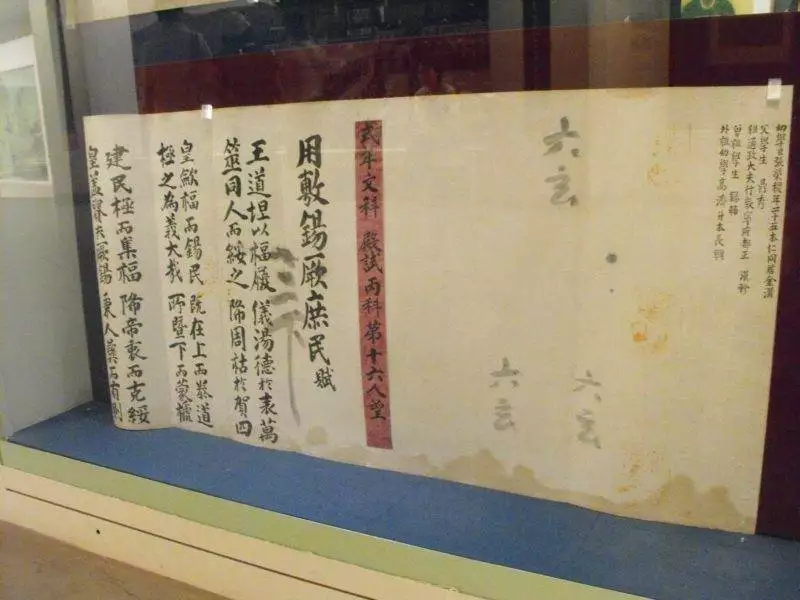 幼學臣張榮稷年二十五本仁同居金溝
父學生 昌秀
祖通政大夫行敦寧府都正 漢
曾祖學生 錫
外祖幼學高濟升本長興
六玄
六玄
六玄
式年文科 殿試丙科第十六人望
用敷錫厥庶民賦
二下
王道坦以福 儀湯德於表萬
筮同人而綏之 降周祜於賀四
皇歛福而錫民 旣在上而恭道
極之為義大哉 所曁下而蒙
建民極而集福 降帝衷而克綏
皇蓋夫厥錫 秉人彝而有則